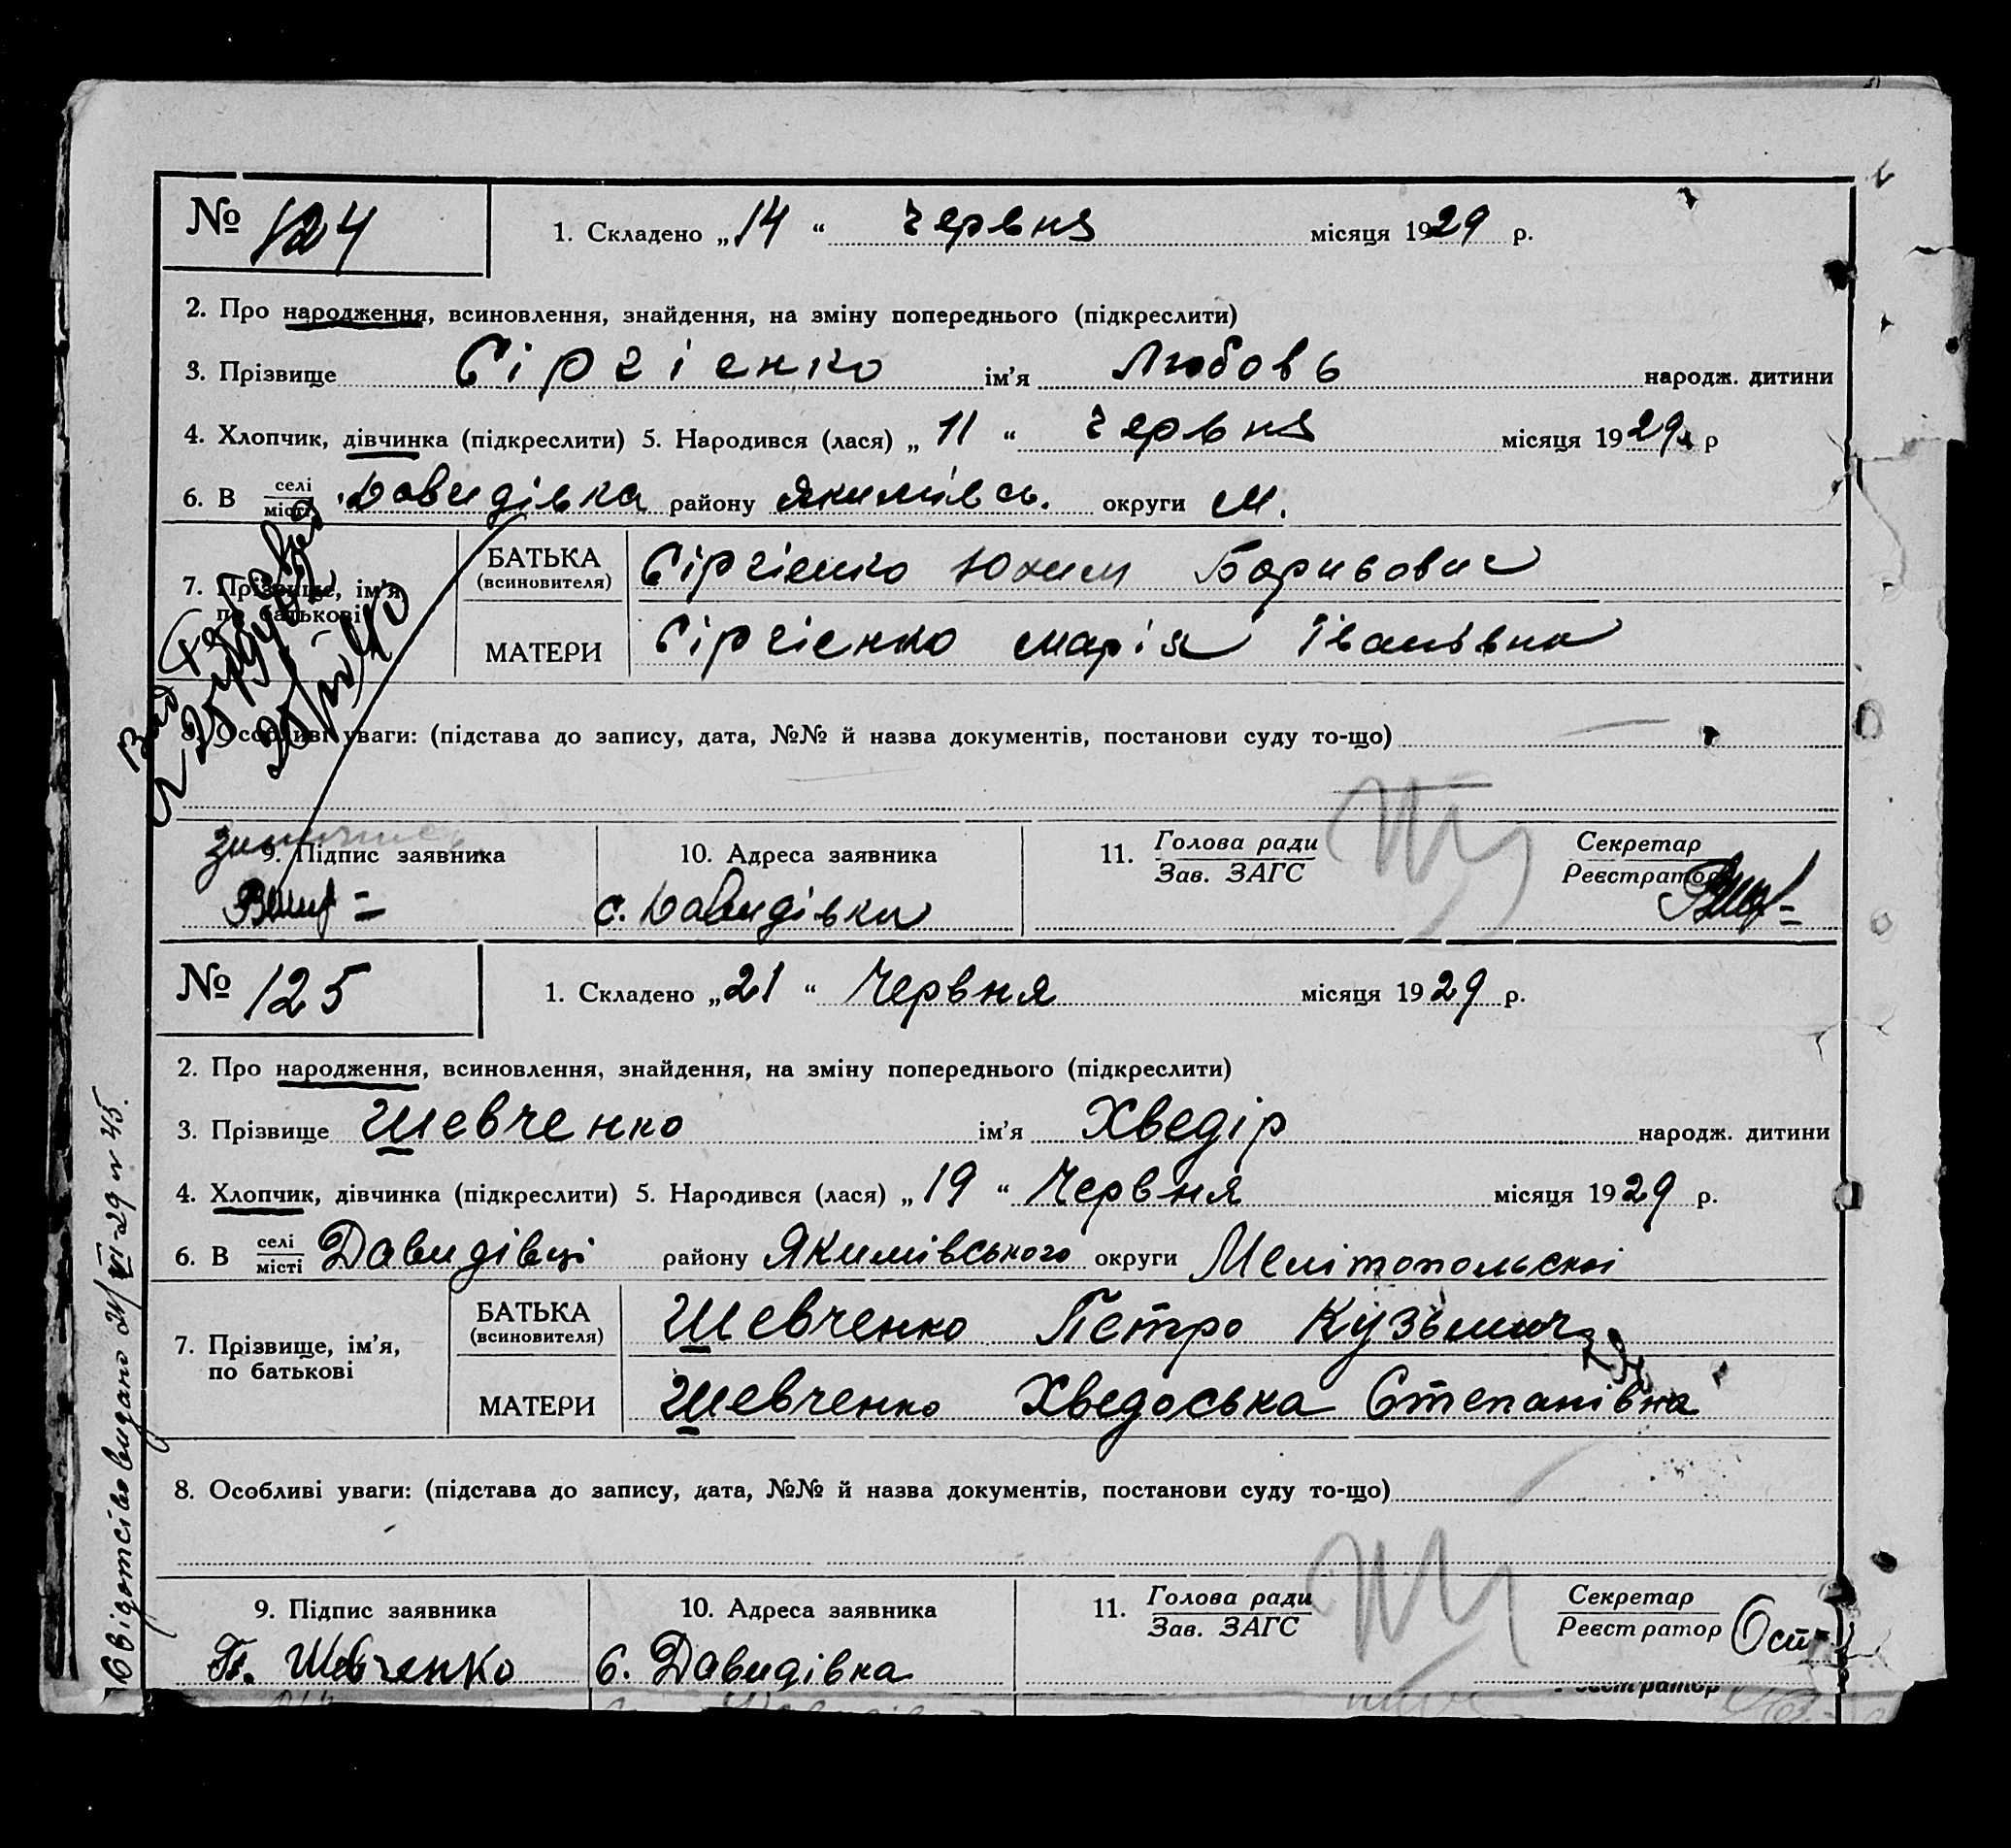 № 124
1. Складено „14“ червня місяця 1929 р.
2. Про народження, всиновлення, знайдення, на зміну попереднього (підкреслити)
3. Прізвище Сіргієнко ім'я Любовь народж. дитини
4. Хлопчик, дівчинка (підкреслити) 5. Народився (лася) „11“ червня місяця 1929 р
6. В селі місті Давидівка району Якимівсь. округи М.
7. Прізвище, ім'я по батькові
БАТЬКА (всиновителя) Сіргієнко Юхим Борисович
МАТЕРИ Сіргієнко Марія Іванівна
8. Особливі уваги: (підстава до запису, дата, №№ й назва документів, постанови суду то-що)
9. Підпис заявника
10. Адреса заявника
11. Голова ради Зав. ЗАГС
Секретар Реєстратор
с. Давидівка
№ 125
1. Складено „21“ Червня місяця 1929 р.
2. Про народження, всиновлення, знайдення, на зміну попереднього (підкреслити)
3. Прізвище Шевченко ім'я Хведір народж. дитини
4. Хлопчик, дівчинка (підкреслити) 5. Народився (лася) „19“ Червня місяця 1929 р.
6. В селі місті Давидівці району Якимівського округи Мелітопольскої
7. Прізвище, ім'я, по батькові
БАТЬКА (всиновителя) Шевченко Петро Кузьмич
МАТЕРИ Шевченко Хведоська Степанівна
8. Особливі уваги: (підстава до запису, дата, №№ й назва документів, постанови суду то-що)
9. Підпис заявника
10. Адреса заявника
11. Голова ради Зав. ЗАГС
Секретар Реєстратор
П. Шевченко
с. Давидівка
Свідотсво видано 21/VI-29 № 45.
Реєстратор